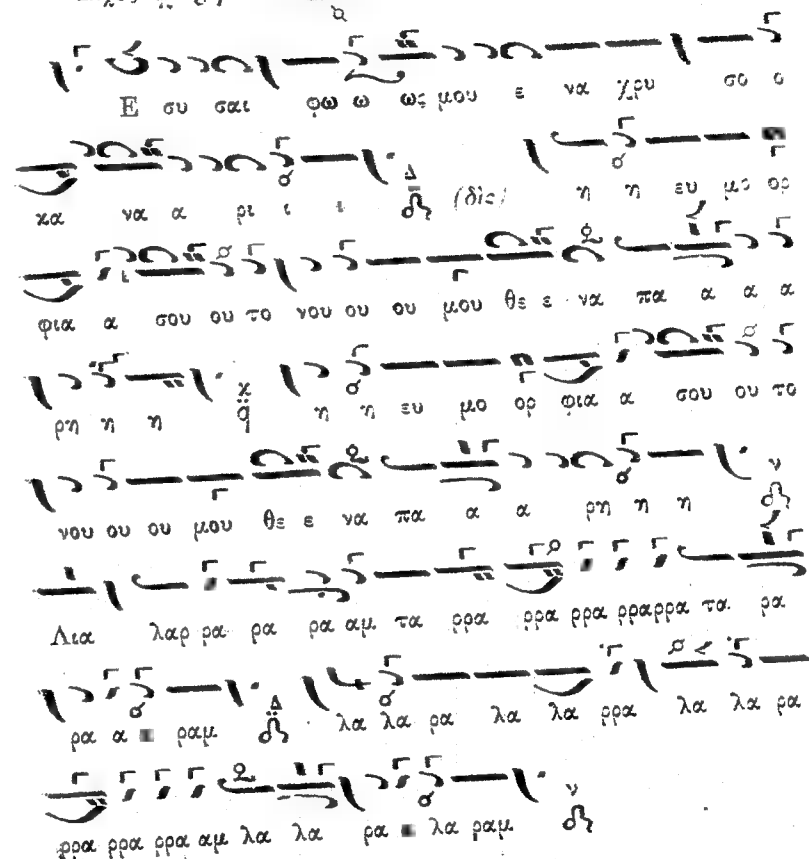 Ε συ σαι φω ω ως μου ε να χρυ σο ο
κα να α ρι ι ι Δ (δὶς) η η ευ μο ορ
φια α σου ου το νου ου ου μου θε ε να πα α α α
ρη η η χ q η η ευ μο ορ φια α σου ου το
νου ου ου μου θε ε να πα α α ρη η η ν
Λια λαρ ρα ρα ρα αμ τα ρρα ρρα ρρα ρραρρα τα ρα
ρα α ραμ Δ λα λα ρα λα λα ρρα λα λα ρα
ρρα ρρα ρρα αμ λα λα ρα λα ραμ ν